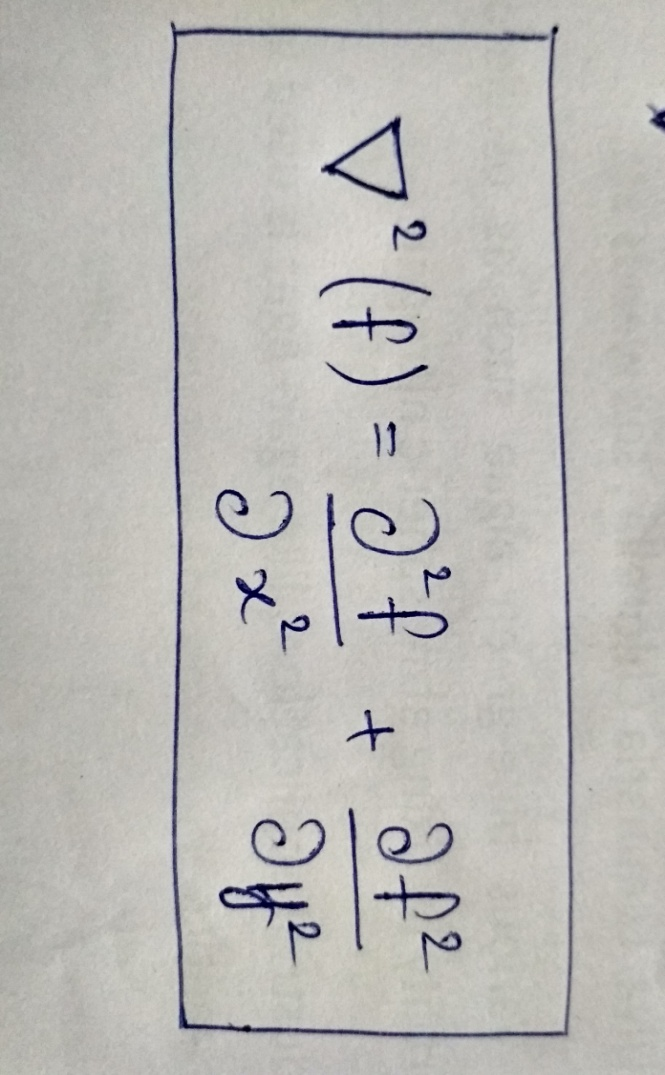 ∇²(f) = ∂²f/∂x² + ∂f²/∂y²